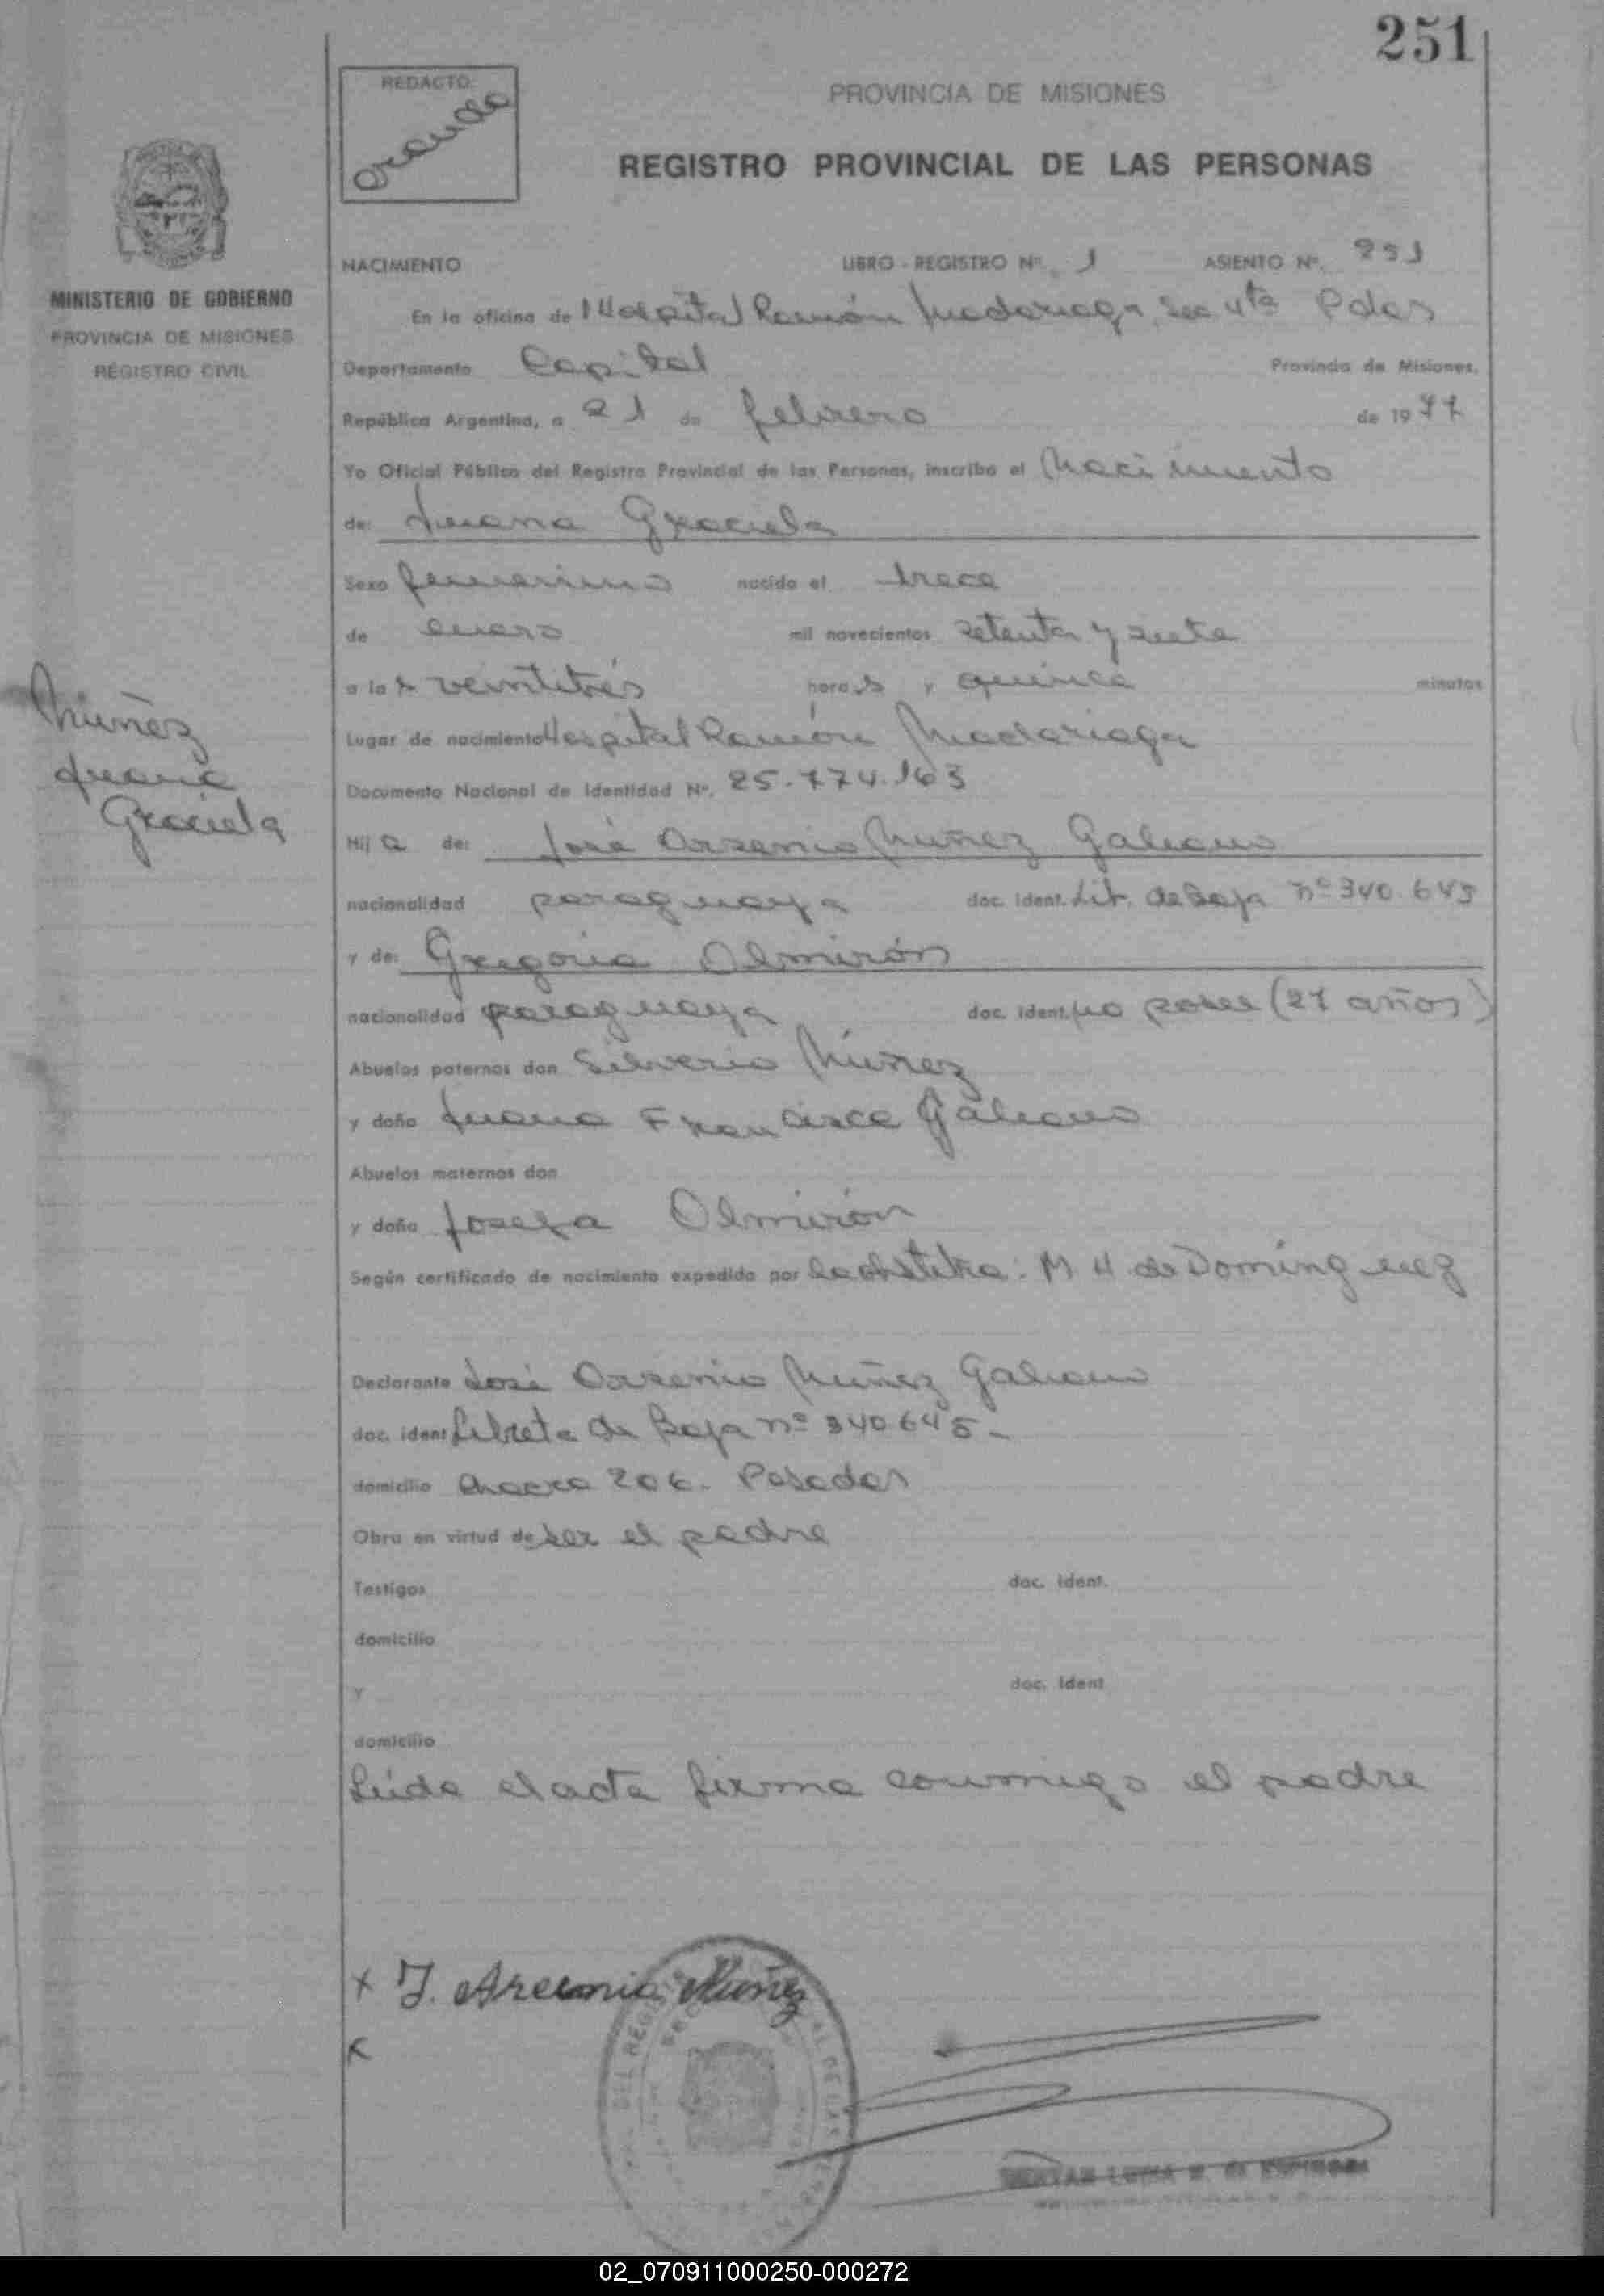 251
REDACTO:
PROVINCIA DE MISIONES
REGISTRO PROVINCIAL DE LAS PERSONAS
MINISTERIO DE GOBIERNO
PROVINCIA DE MISIONES
REGISTRO CIVIL
NACIMIENTO LIBRO - REGISTRO Nº. 1 ASIENTO Nº. 251
En la oficina de Hospital Ramón Madariaga, Sec 4ta Pdas
Departamento Capital Provincia de Misiones,
República Argentina, a 21 de febrero de 1977
Yo Oficial Público del Registro Provincial de las Personas, inscribo el Nacimiento
de: Juana Graciela
Sexo femenino nacido el trece
de enero mil novecientos setenta y siete
a las veintitrés horas y quince minutos
Núñez
Juana
Graciela
Lugar de nacimiento Hospital Ramón Madariaga
Documento Nacional de Identidad Nº. 25.774.163
Hija de: José Arsenio Núñez Galeano
nacionalidad paraguaya doc. ident. Lit. de Baja nº 340.645
y de: Gregoria Almirón
nacionalidad paraguaya doc. ident. no posee (27 años)
Abuelos paternos don Silverio Núñez
y doña Juana Francisca Galeano
Abuelos maternos don
y doña Josefa Almirón
Según certificado de nacimiento expedido por la obstetra: M H de Domínguez
Declarante José Arsenio Núñez Galeano
doc. ident Libreta de Baja nº 340645-
domicilio Chacra 206. Posadas
Obra en virtud de ser el padre
Testigos doc. ident.
domicilio
y doc. ident
domicilio
Leída el acta firma conmigo el padre
x J. Arcenio Nuñez
x
02_070911000250-000272